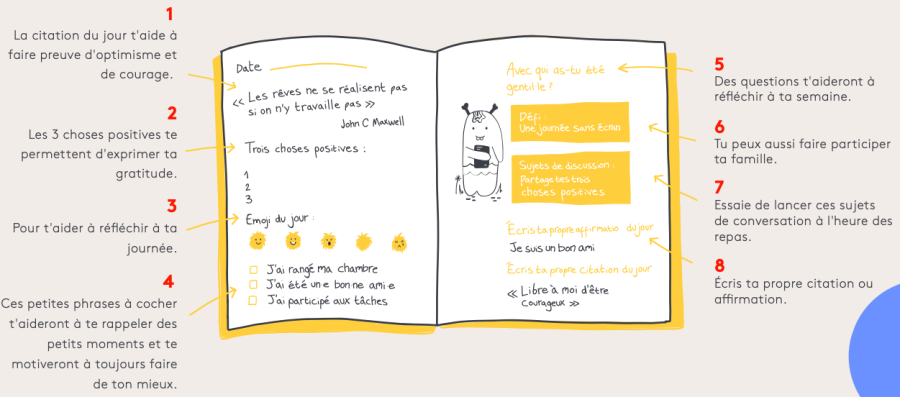 1
La citation du jour t'aide à
faire preuve d'optimisme et
de courage.
2
Les 3 choses positives te
permettent d'exprimer ta
gratitude.
3
Pour t'aider à réfléchir à ta
journée.
4
Ces petites phrases à cocher
t'aideront à te rappeler des
petits moments et te
motiveront à toujours faire
de ton mieux.
Date
« Les rêves ne se réalisent pas
si on n'y travaille pas »
John C Maxwell
Trois choses positives :
1
2
3
Emoji du jour :
J'ai rangé ma chambre
J'ai été un·e bon·ne ami·e
J'ai participé aux tâches
Avec qui as-tu été
gentil·le ?
Défi :
Une journée sans écran
Sujets de discussion :
Partage tes trois
choses positives
Écris ta propre affirmatio du jour
Je suis un bon ami
Écris ta propre citation du jour
« Libre à moi d'être
courageux »
5
Des questions t'aideront à
réfléchir à ta semaine.
6
Tu peux aussi faire participer
ta famille.
7
Essaie de lancer ces sujets
de conversation à l'heure des
repas.
8
Écris ta propre citation ou
affirmation.